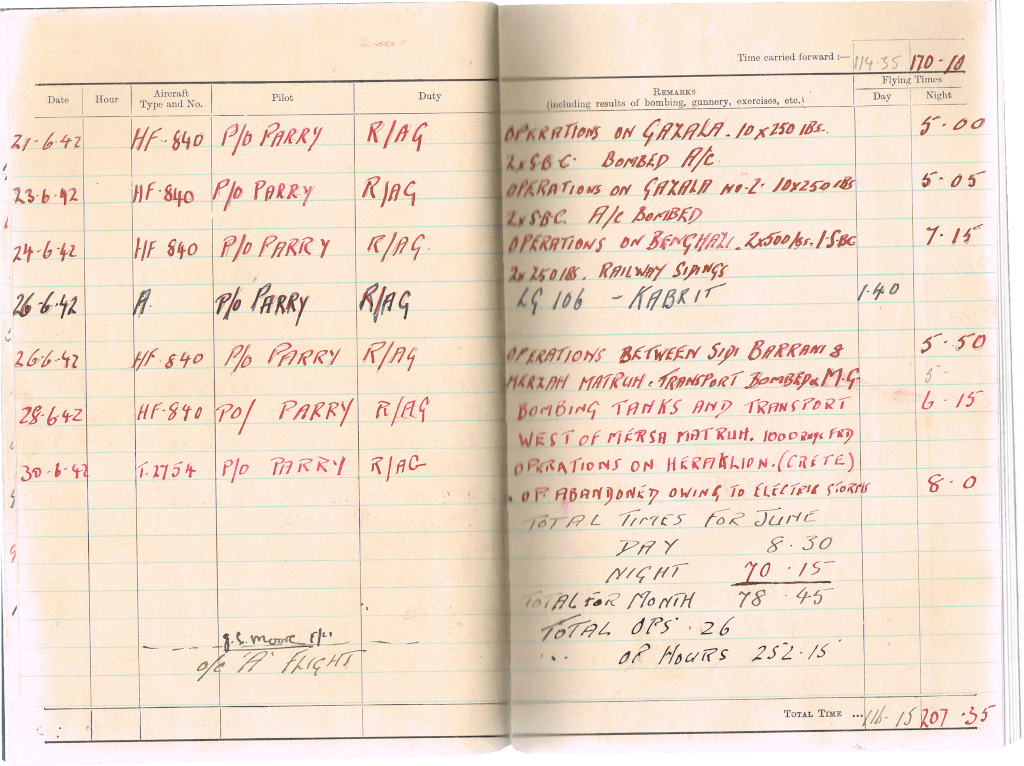 Time carried forward :— 114·35 170·10
Date Hour Aircraft Type and No. Pilot Duty REMARKS (including results of bombing, gunnery, exercises, etc.) Flying Times Day Night
21·6·42 HF·840 P/O PARRY R/AG OPERATIONS ON GAZALA. 10x250 lBS. 5·00
2x S·B·C· BOMBED A/C.
23·6·42 HF·840 P/O PARRY R/AG OPERATIONS ON GAZALA NO·2· 10x250 lBS 5·05
2x S·B·C. A/C BOMBED
24·6·42 HF 840 P/O PARRY R/AG. OPERATIONS ON BENGHAZI. 2x500 lbs. 1 SBC 7·15
2x 250 lBS. RAILWAY SIDINGS
26·6·42 A. P/O PARRY R/AG LG 106 – KABRIT 1·40
26·6·42 HF·840 P/O PARRY R/AG OPERATIONS BETWEEN SIDI BARRANI & 5·50
MERZAH MATRUH. TRANSPORT BOMBED & M.G. 5-
28·6·42 HF·840 PO/ PARRY R/AG BOMBING TANKS AND TRANSPORT 6·15
WEST OF MERSA MATRUH. 1000 Rngs FRD
30·6·42 T.2754 P/O PARRY R/AG OPERATIONS ON HERAKLION. (CRETE)
. OP. ABANDONED OWING TO ELECTRIC STORMS 8·0
TOTAL TIMES FOR JUNE
DAY 8·30
NIGHT 70·15
TOTAL FOR MONTH 78·45
TOTAL OPS. 26
J.S. Moore F/Lt
... OP HOURS 252·15
O/C 'A' FLIGHT
TOTAL TIME ... 116·15 207·35